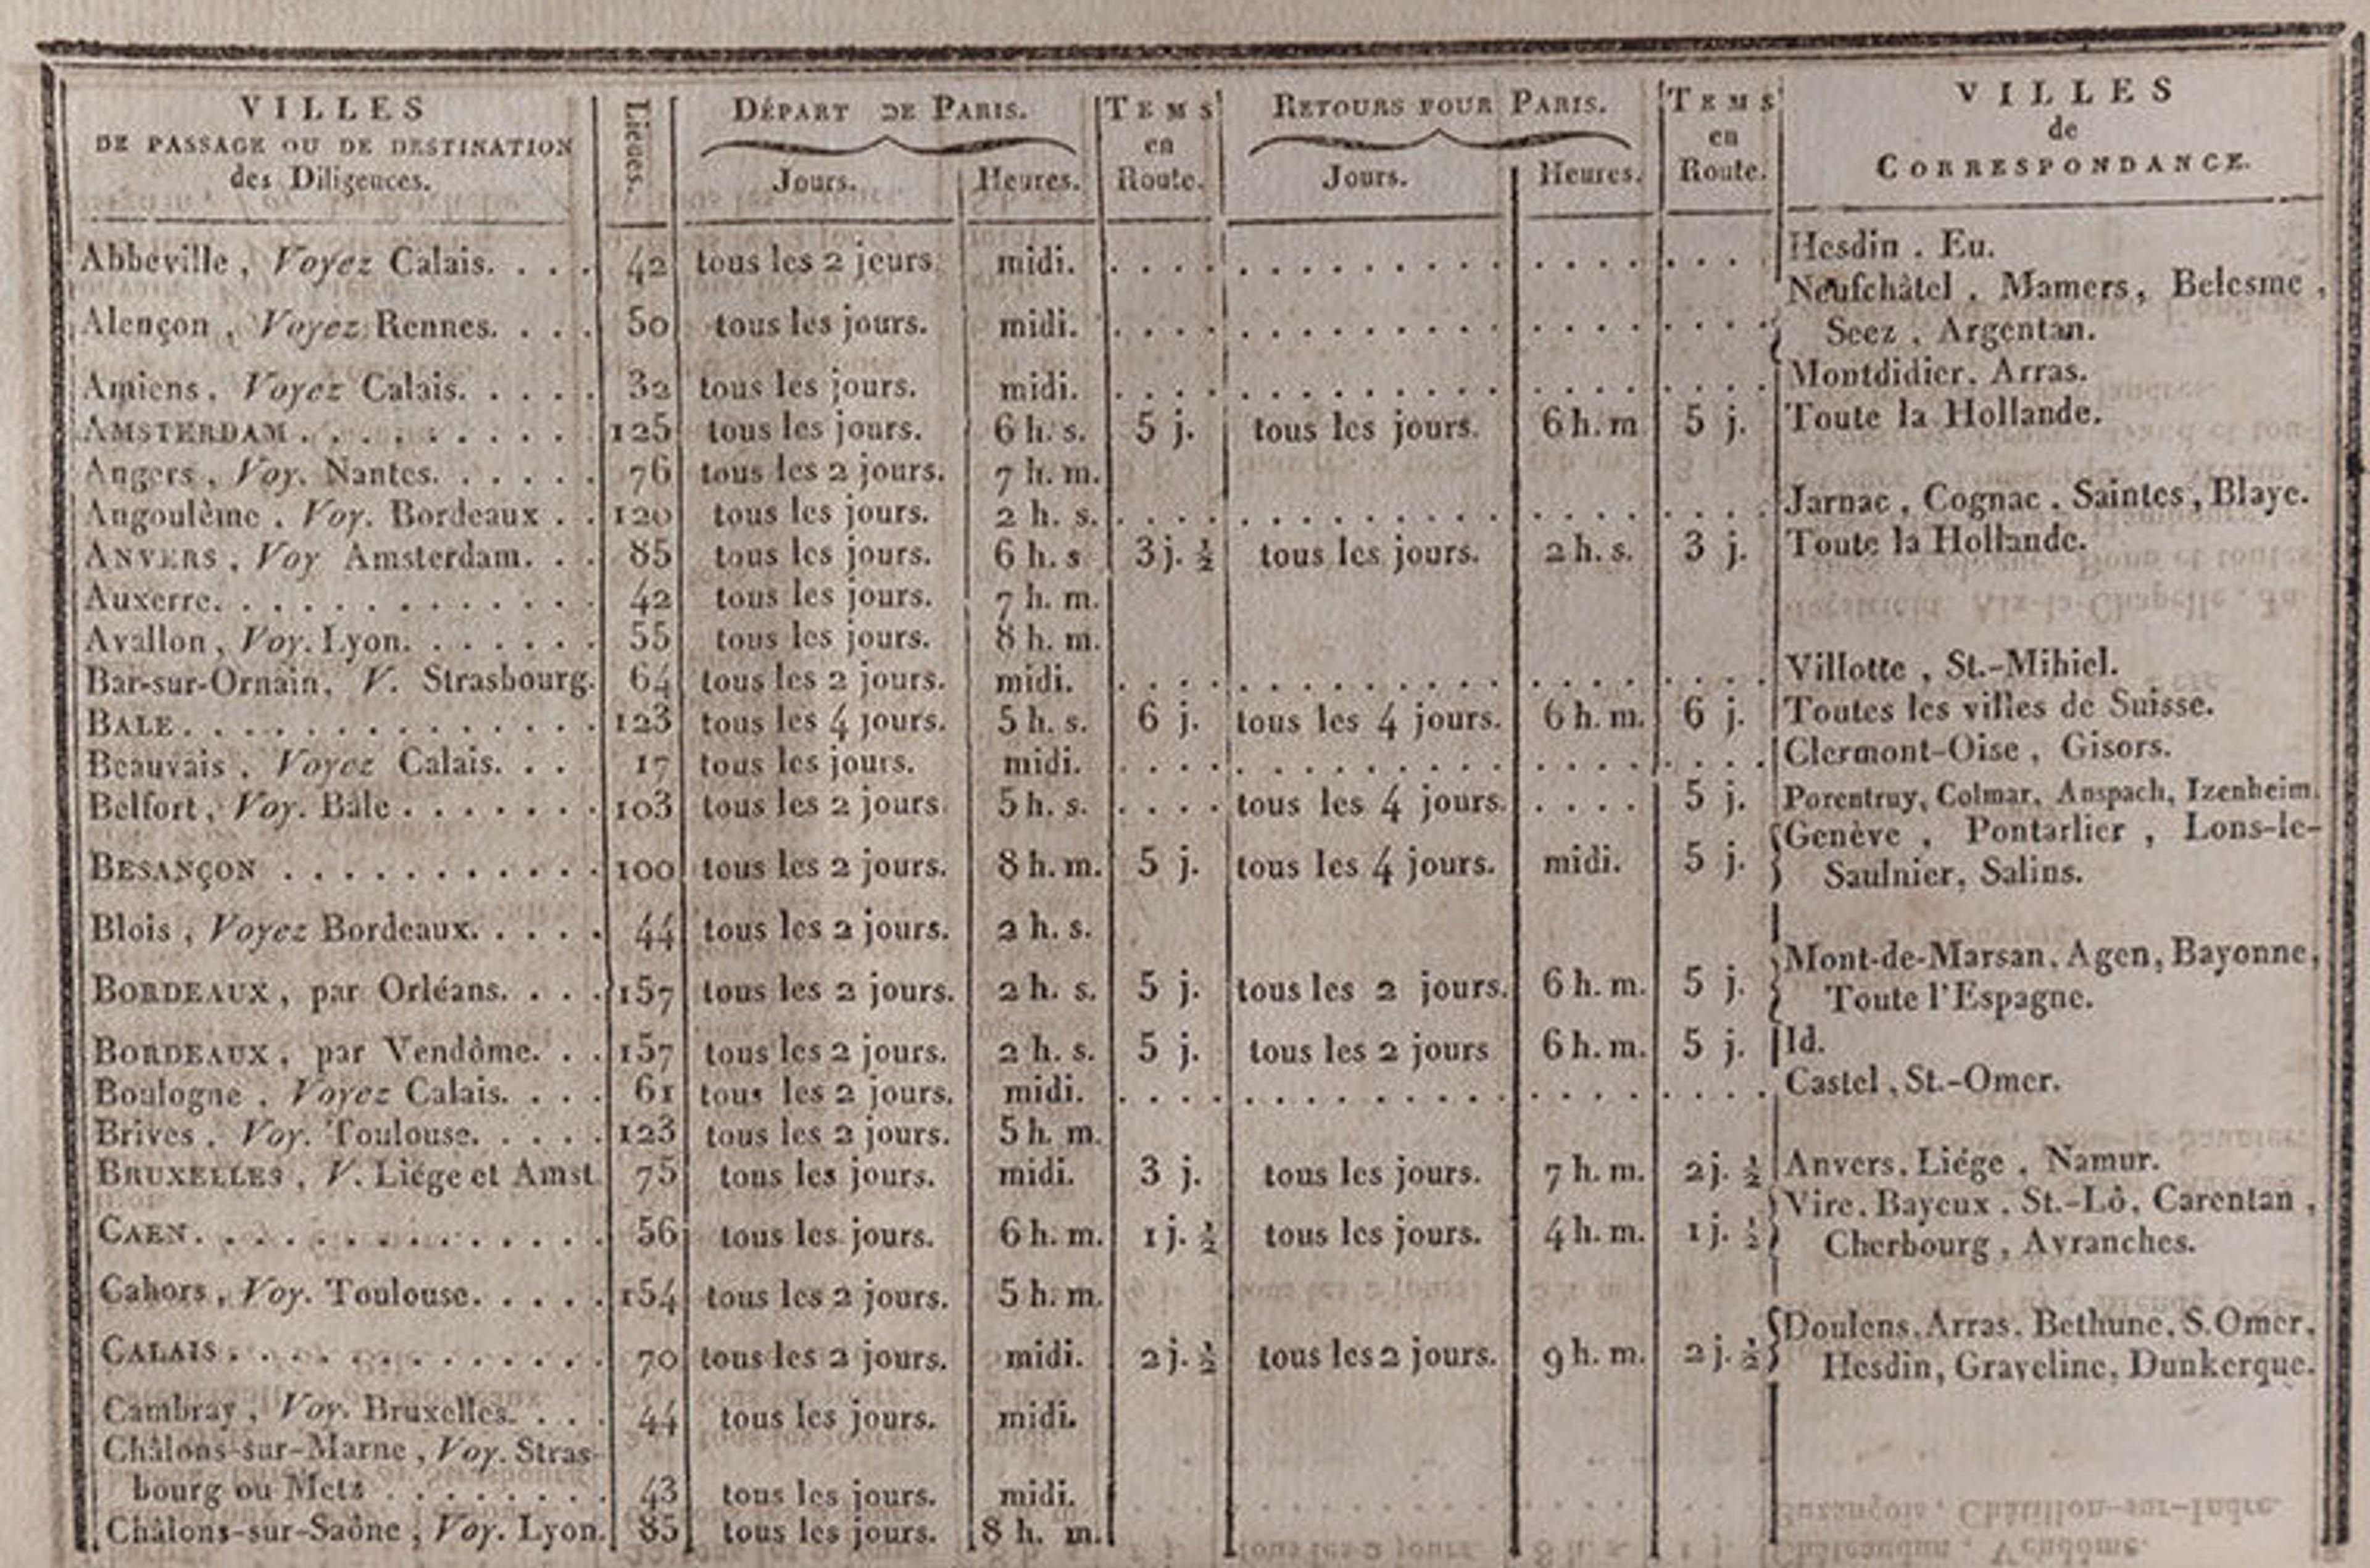 VILLES
DE PASSAGE OU DE DESTINATION
des Diligences.
Lieues.
DÉPART DE PARIS.
Jours. Heures.
TEMS
en
Route.
RETOURS POUR PARIS.
Jours. Heures.
TEMS
en
Route.
VILLES
de
CORRESPONDANCE.
Abbeville, Voyez Calais. . . . 42 tous les 2 jours. midi. . . . . Hesdin. Eu.
Alençon, Voyez Rennes. . . . 50 tous les jours. midi. . . . . Neufchâtel, Mamers, Belesme,
Seez, Argentan.
Amiens, Voyez Calais. . . . . 32 tous les jours. midi. . . . . Montdidier. Arras.
AMSTERDAM. . . . . . . . . 125 tous les jours. 6 h. s. 5 j. tous les jours. 6 h. m 5 j. Toute la Hollande.
Angers, Voy. Nantes. . . . . . 76 tous les 2 jours. 7 h. m.
Angoulême, Voy. Bordeaux . . 120 tous les jours. 2 h. s. . . . . Jarnac, Cognac. Saintes, Blaye.
ANVERS, Voy Amsterdam. . . 85 tous les jours. 6 h. s 3 j. ½ tous les jours. 2 h. s. 3 j. Toute la Hollande.
Auxerre. . . . . . . . . . . . . 42 tous les jours. 7 h. m.
Avallon, Voy. Lyon. . . . . . . 55 tous les jours. 8 h. m.
Bar-sur-Ornain, V. Strasbourg. 64 tous les 2 jours. midi. . . . . Villotte, St.-Mihiel.
BALE. . . . . . . . . . . . . . 123 tous les 4 jours. 5 h. s. 6 j. tous les 4 jours. 6 h. m. 6 j. Toutes les villes de Suisse.
Beauvais, Voyez Calais. . . 17 tous les jours. midi. . . . . Clermont-Oise, Gisors.
Belfort, Voy. Bâle . . . . . . . 103 tous les 2 jours. 5 h. s. . . . . tous les 4 jours. . . . . 5 j. Porentruy, Colmar, Anspach, Izenheim.
BESANÇON . . . . . . . . . . . 100 tous les 2 jours. 8 h. m. 5 j. tous les 4 jours. midi. 5 j. Genève, Pontarlier, Lons-le-
Saulnier, Salins.
Blois, Voyez Bordeaux. . . . . 44 tous les 2 jours. 2 h. s.
BORDEAUX, par Orléans. . . . 157 tous les 2 jours. 2 h. s. 5 j. tous les 2 jours. 6 h. m. 5 j. Mont-de-Marsan, Agen, Bayonne,
Toute l'Espagne.
BORDEAUX, par Vendôme. . . 157 tous les 2 jours. 2 h. s. 5 j. tous les 2 jours 6 h. m. 5 j. Id.
Boulogne, Voyez Calais. . . . 61 tous les 2 jours. midi. . . . . Castel, St.-Omer.
Brives. Voy. Toulouse. . . . . 123 tous les 2 jours. 5 h. m.
BRUXELLES, V. Liége et Amst. 75 tous les jours. midi. 3 j. tous les jours. 7 h. m. 2 j. ½ Anvers, Liége, Namur.
CAEN. . . . . . . . . . . . . . 56 tous les jours. 6 h. m. 1 j. ½ tous les jours. 4 h. m. 1 j. ½ Vire, Bayeux, St.-Lô, Carentan,
Cherbourg, Avranches.
Cahors, Voy. Toulouse. . . . . 154 tous les 2 jours. 5 h. m.
CALAIS. . . . . . . . . . . . . 70 tous les 2 jours. midi. 2 j. ½ tous les 2 jours. 9 h. m. 2 j. ½ Doulens, Arras. Bethune, S. Omer,
Hesdin, Graveline, Dunkerque.
Cambray, Voy. Bruxelles. . . . 44 tous les jours. midi.
Châlons-sur-Marne, Voy. Stras-
bourg ou Metz . . . . . . . . 43 tous les jours. midi.
Châlons-sur-Saône, Voy. Lyon. 85 tous les jours. 8 h. m.